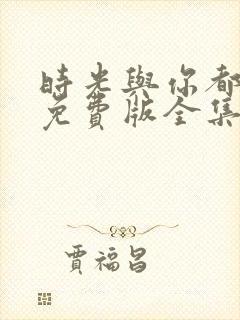 時光與你都
免費版全集
賈福昌